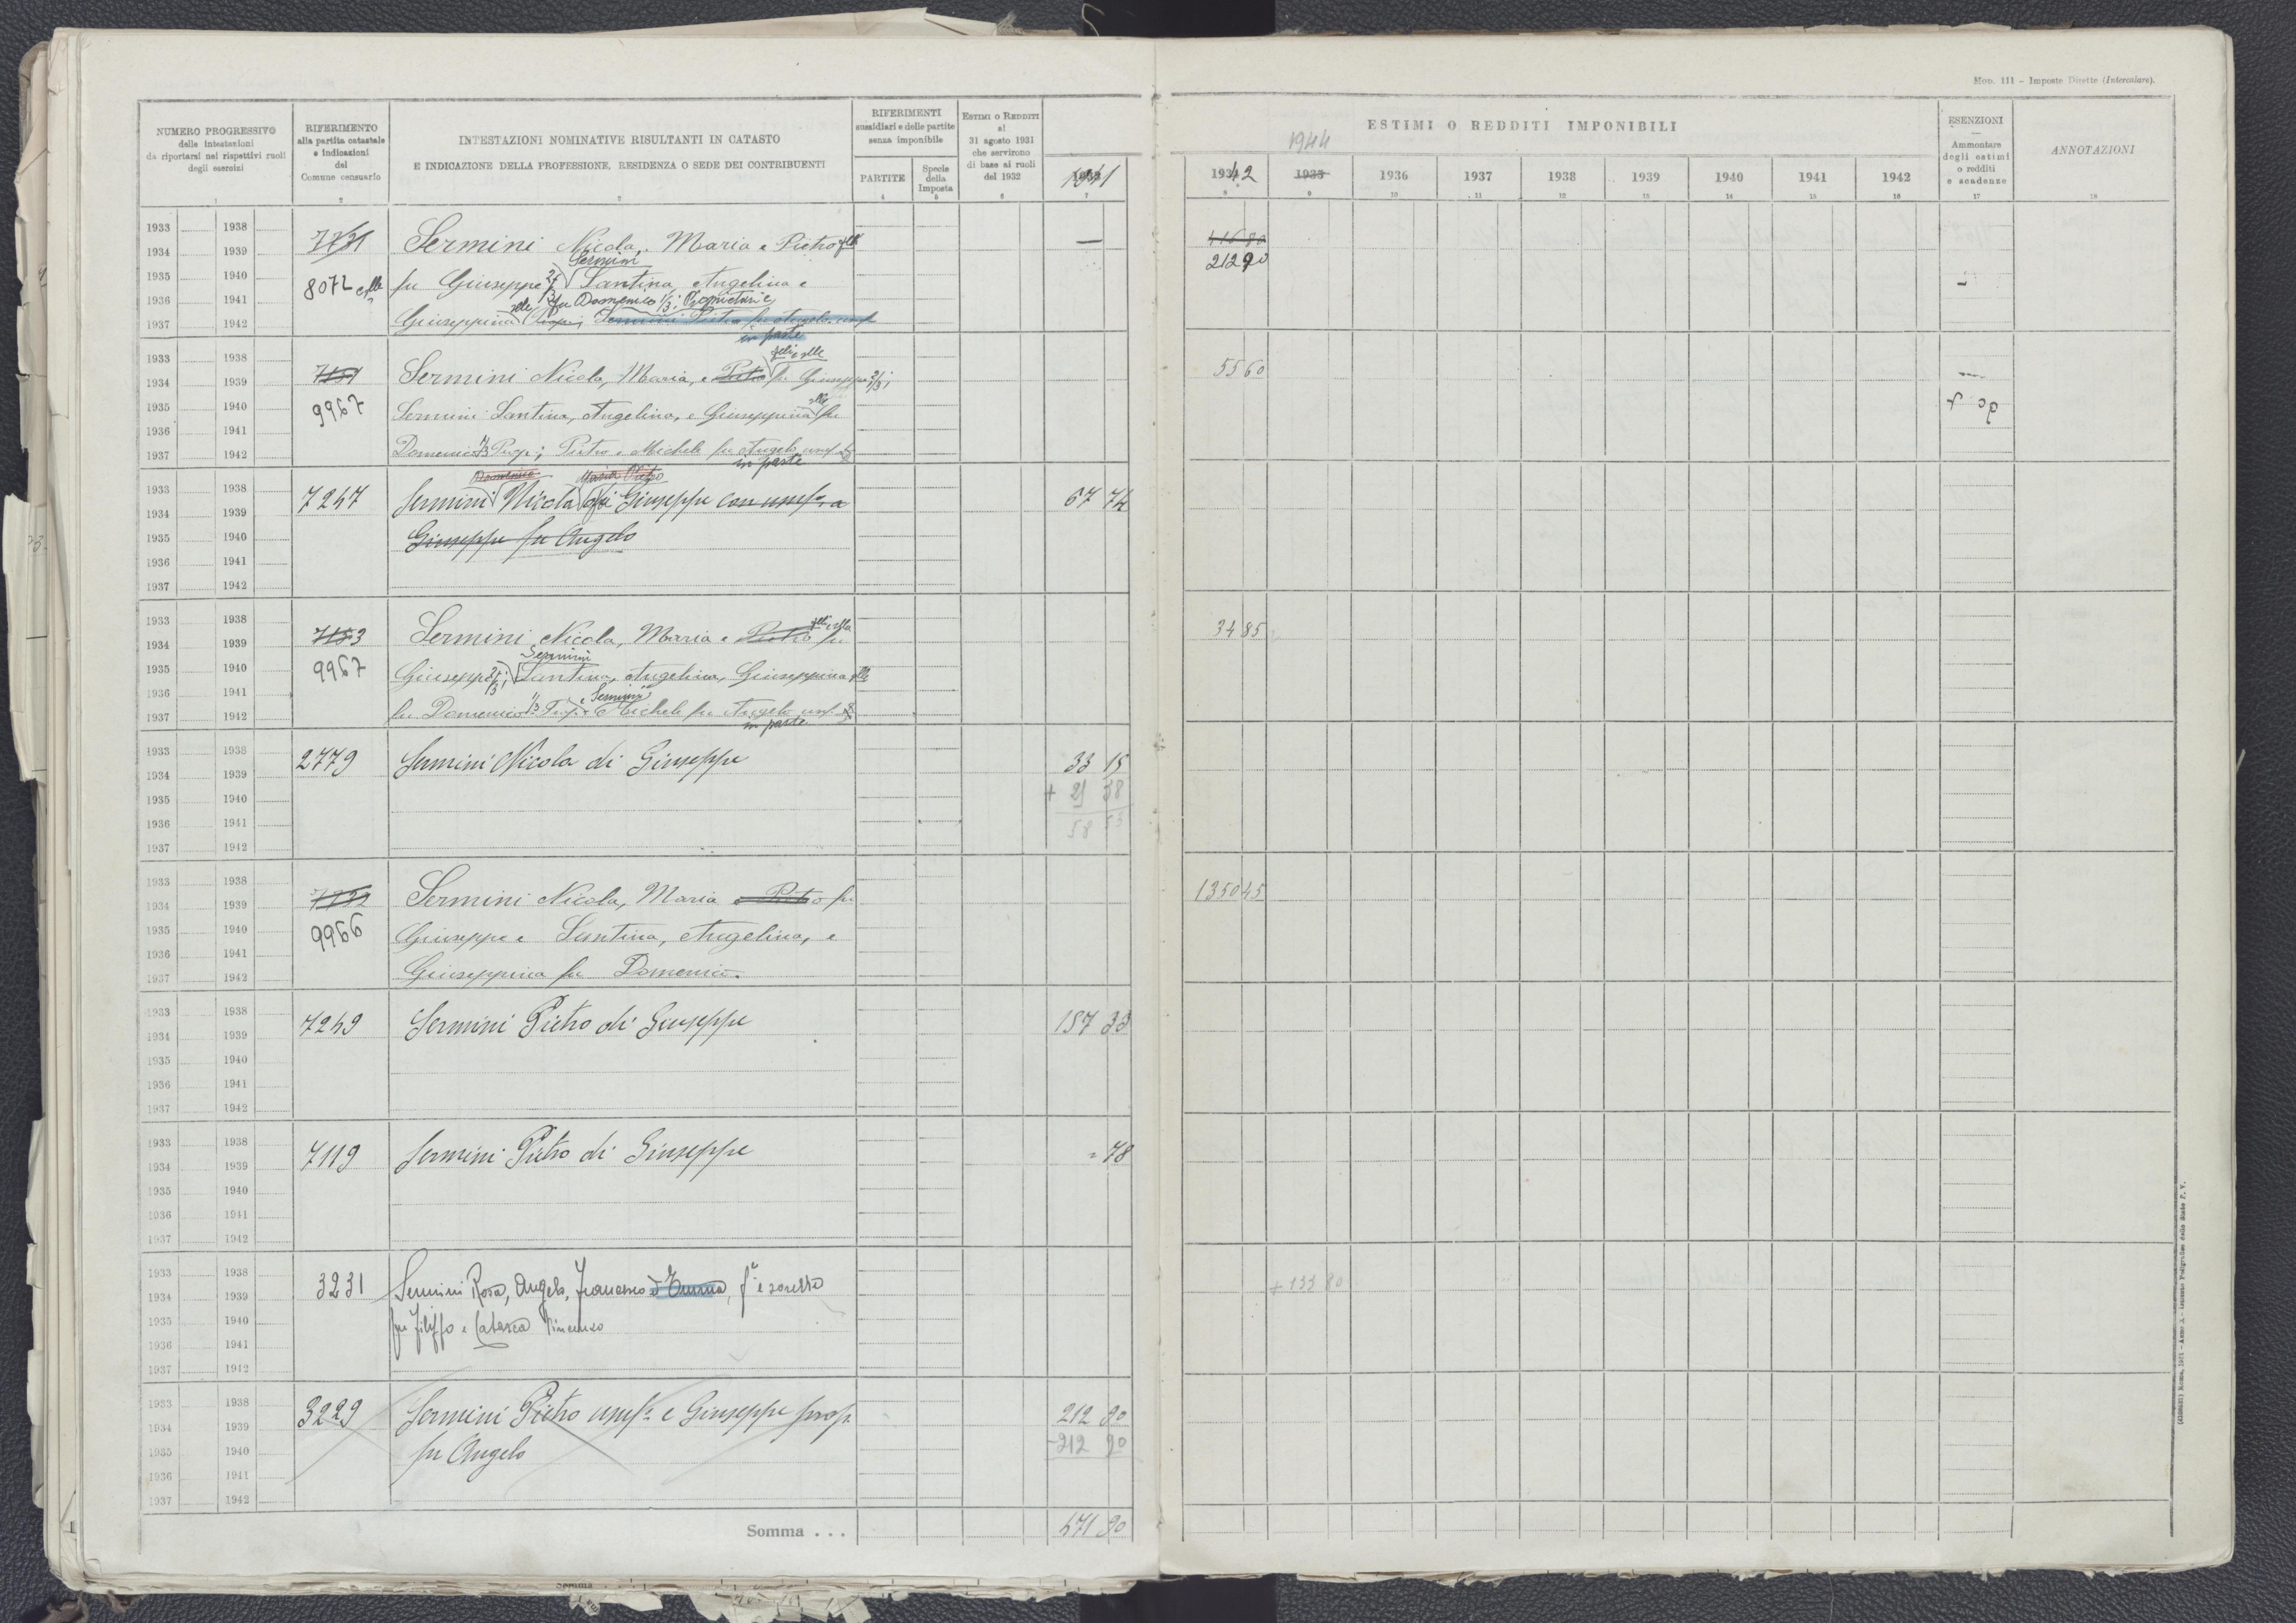 Mod. 111 – Imposte Dirette (Intercalare).
NUMERO PROGRESSIVO
delle intestazioni
da riportarsi nei rispettivi ruoli
degli esercizi
RIFERIMENTO
alla partita catastale
e indicazioni
del
Comune censuario
INTESTAZIONI NOMINATIVE RISULTANTI IN CATASTO
E INDICAZIONE DELLA PROFESSIONE, RESIDENZA O SEDE DEI CONTRIBUENTI
RIFERIMENTI
sussidiari e delle partite
senza imponibile
PARTITE
Specie
della
Imposta
ESTIMI O REDDITI
al
31 agosto 1931
che servirono
di base ai ruoli
del 1932
1941
ESTIMI O REDDITI IMPONIBILI
1944
1942 1935 1936 1937 1938 1939 1940 1941 1942
ESENZIONI
Ammontare
degli estimi
o redditi
e scadenze
ANNOTAZIONI
1 2 3 4 5 6 7 8 9 10 11 12 13 14 15 16 17 18
1933 1938
1934 1939
1935 1940
1936 1941
1937 1942
7731
8072
Sermini Nicola, Maria e Pietro
Sermini
fu Giuseppe 2/3 Santina, Angelina e
fu Domenico 1/3; Proprietarie
Giuseppina Prop; Sermini Pietro fu Angelo usuf
in parte
—
416 80
212 90
1933 1938
1934 1939
1935 1940
1936 1941
1937 1942
9967
Sermini Nicola, Maria, e Pietro fu Giuseppe 2/3;
Sermini Santina, Angelina, e Giuseppina fu
Domenico 1/3 Prop; Pietro e Michele fu Angelo usuf
in parte
55 60
1933 1938
1934 1939
1935 1940
1936 1941
1937 1942
Domenico Maria Pietro
7247
Sermini Nicola di Giuseppe con usuf. a
Giuseppe fu Angelo
67 74
1933 1938
1934 1939
1935 1940
1936 1941
1937 1942
7153
9967
Sermini Nicola, Maria e Pietro fu
Sermini
Giuseppe 2/3; Santina, Angelina, Giuseppina
Sermini
fu Domenico 1/3 Prop. e Michele fu Angelo usuf.
in parte
34 85
1933 1938
1934 1939
1935 1940
1936 1941
1937 1942
2779
Sermini Nicola di Giuseppe
33 15
+ 21 38
58 53
1933 1938
1934 1939
1935 1940
1936 1941
1937 1942
9966
Sermini Nicola, Maria e Pietro fu
Giuseppe e Santina, Angelina, e
Giuseppina fu Domenico.
1350 45
1933 1938
1934 1939
1935 1940
1936 1941
1937 1942
7249
Sermini Pietro di Giuseppe
157 33
1933 1938
1934 1939
1935 1940
1936 1941
1937 1942
7119
Sermini Pietro di Giuseppe
= 78
1933 1938
1934 1939
1935 1940
1936 1941
1937 1942
3231
Sermini Rosa, Angelo, Francesco ed Emma, f.i e sorelle
fu Filippo e Vincenzo
+ 133 80
1933 1938
1934 1939
1935 1940
1936 1941
1937 1942
3229
Sermini Pietro usuf. e Giuseppe prop.
fu Angelo
212 90
-212 90
Somma . . .
471 90
Somma